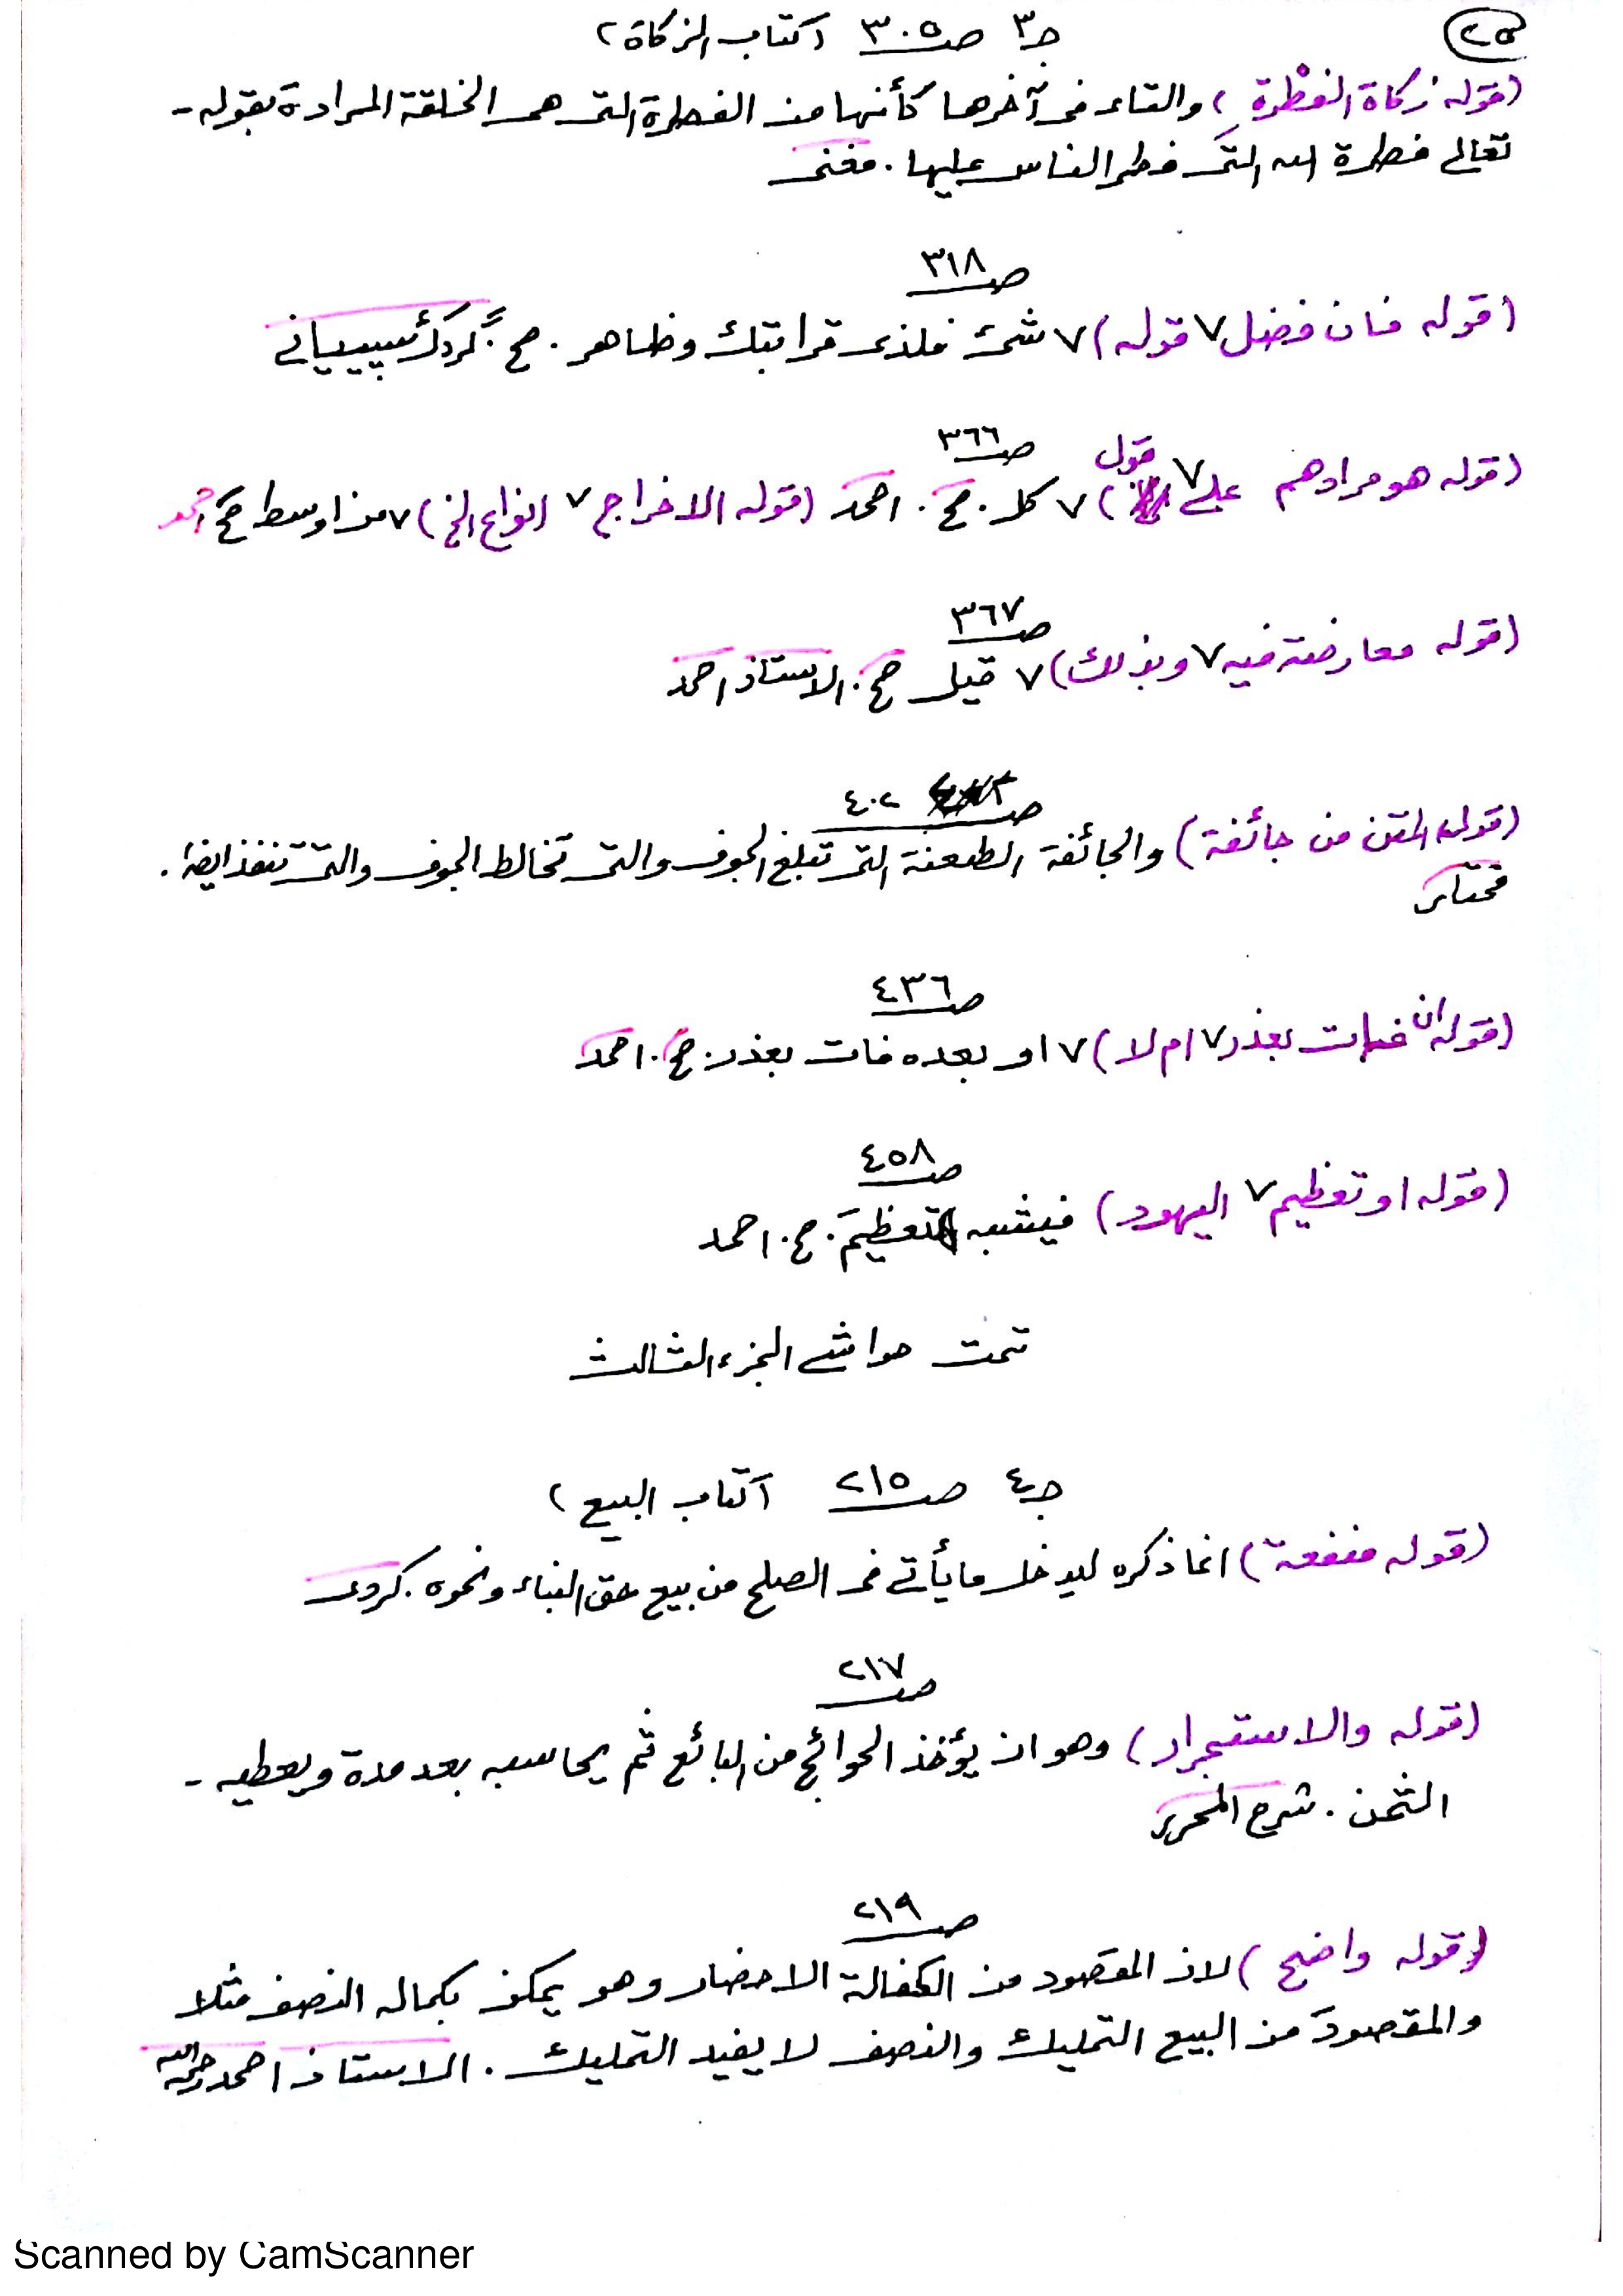 ٢٥
جـ٣ صـ٣٠٥ (كتاب الزكاة)
(قوله زكاة الفِطْرة) والتاء فى آخرها كأنها من الفطرة التى هى الخلقة المرادة بقوله -
تعالى فطرة الله التى فطر الناس عليها . مغنى
صـ٣١٨
(قوله فان فضل ٧ قوله) ٧ شئ فلذى قرابتك وظاهر . صح .
صـ٣٦٦
(قوله هو مرادهم على ٧ قول) ٧ كل . صح . احمد (قوله الاخراج ٧ انواع الخ) ٧ من اوسط صح احمد
صـ٣٦٧
(قوله معارضته فيه ٧ وبذلك) ٧ قيل صح . الاستاذ احمد
صـ٤٠٢
(قوله المتن من جائفة) والجائفة الطعنة التى تبلغ الجوف والتى تخالط الجوف والتى تنفذ ايضا .
مختار
صـ٤٣٦
(قوله ان فات بعذر ٧ ام لا) ٧ او بعده فات بعذر . صح . احمد
صـ٤٥٨
(قوله او تعظيم ٧ اليهود) فيشبه تعظيم . صح . احمد
تمت حواشى الجزء الثالث
جـ٤ صـ٢١٥ (كتاب البيع)
(قوله منفعة) انما ذكره ليدخل ما يأتى فى الصلح من بيع حق البناء ونحوه . كردى
صـ٢١٧
(قوله والاستجرار) وهو ان يؤخذ الحوائج من البائع ثم يحاسبه بعد مدة ويعطيه -
الثمن . شرح المحرر
صـ٢١٩
(قوله واضح) لان المقصود من الكفالة الاحضار وهو يمكن بكمال النصف مثلا
والمقصود من البيع التمليك والنصف لا يفيد التمليك . الاستاذ احمد رحمه الله
Scanned by CamScanner